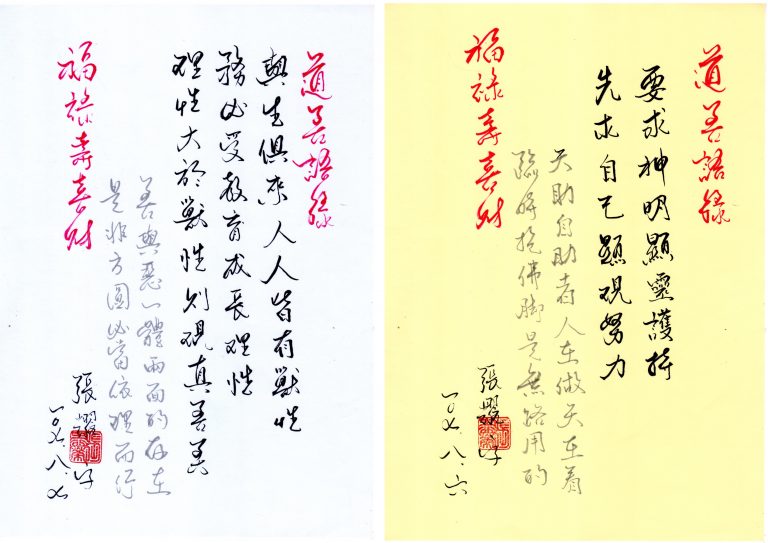 道善語錄
要求神明顯靈護持
先求自己顯現努力
天助自助者人在做天在看
臨時抱佛腳是無路用的
福祿壽喜財
張耀
一〇七.八.六
道善語錄
與生俱來人人皆有獸性
務必受教育成長理性
理性大於獸性則現真善美
善與惡一體兩面的存在
是非方圓必當依理而行
福祿壽喜財
張耀
一〇七.八.七